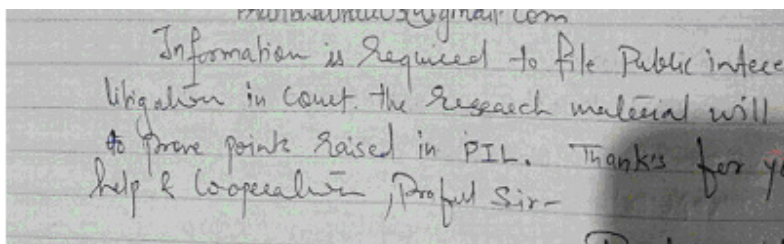 @gmail.com
Information is required to file Public inter
litigation in court. the research material will
to prove points raised in PIL. Thanks for yo
help & Cooperation, Praful Sir-